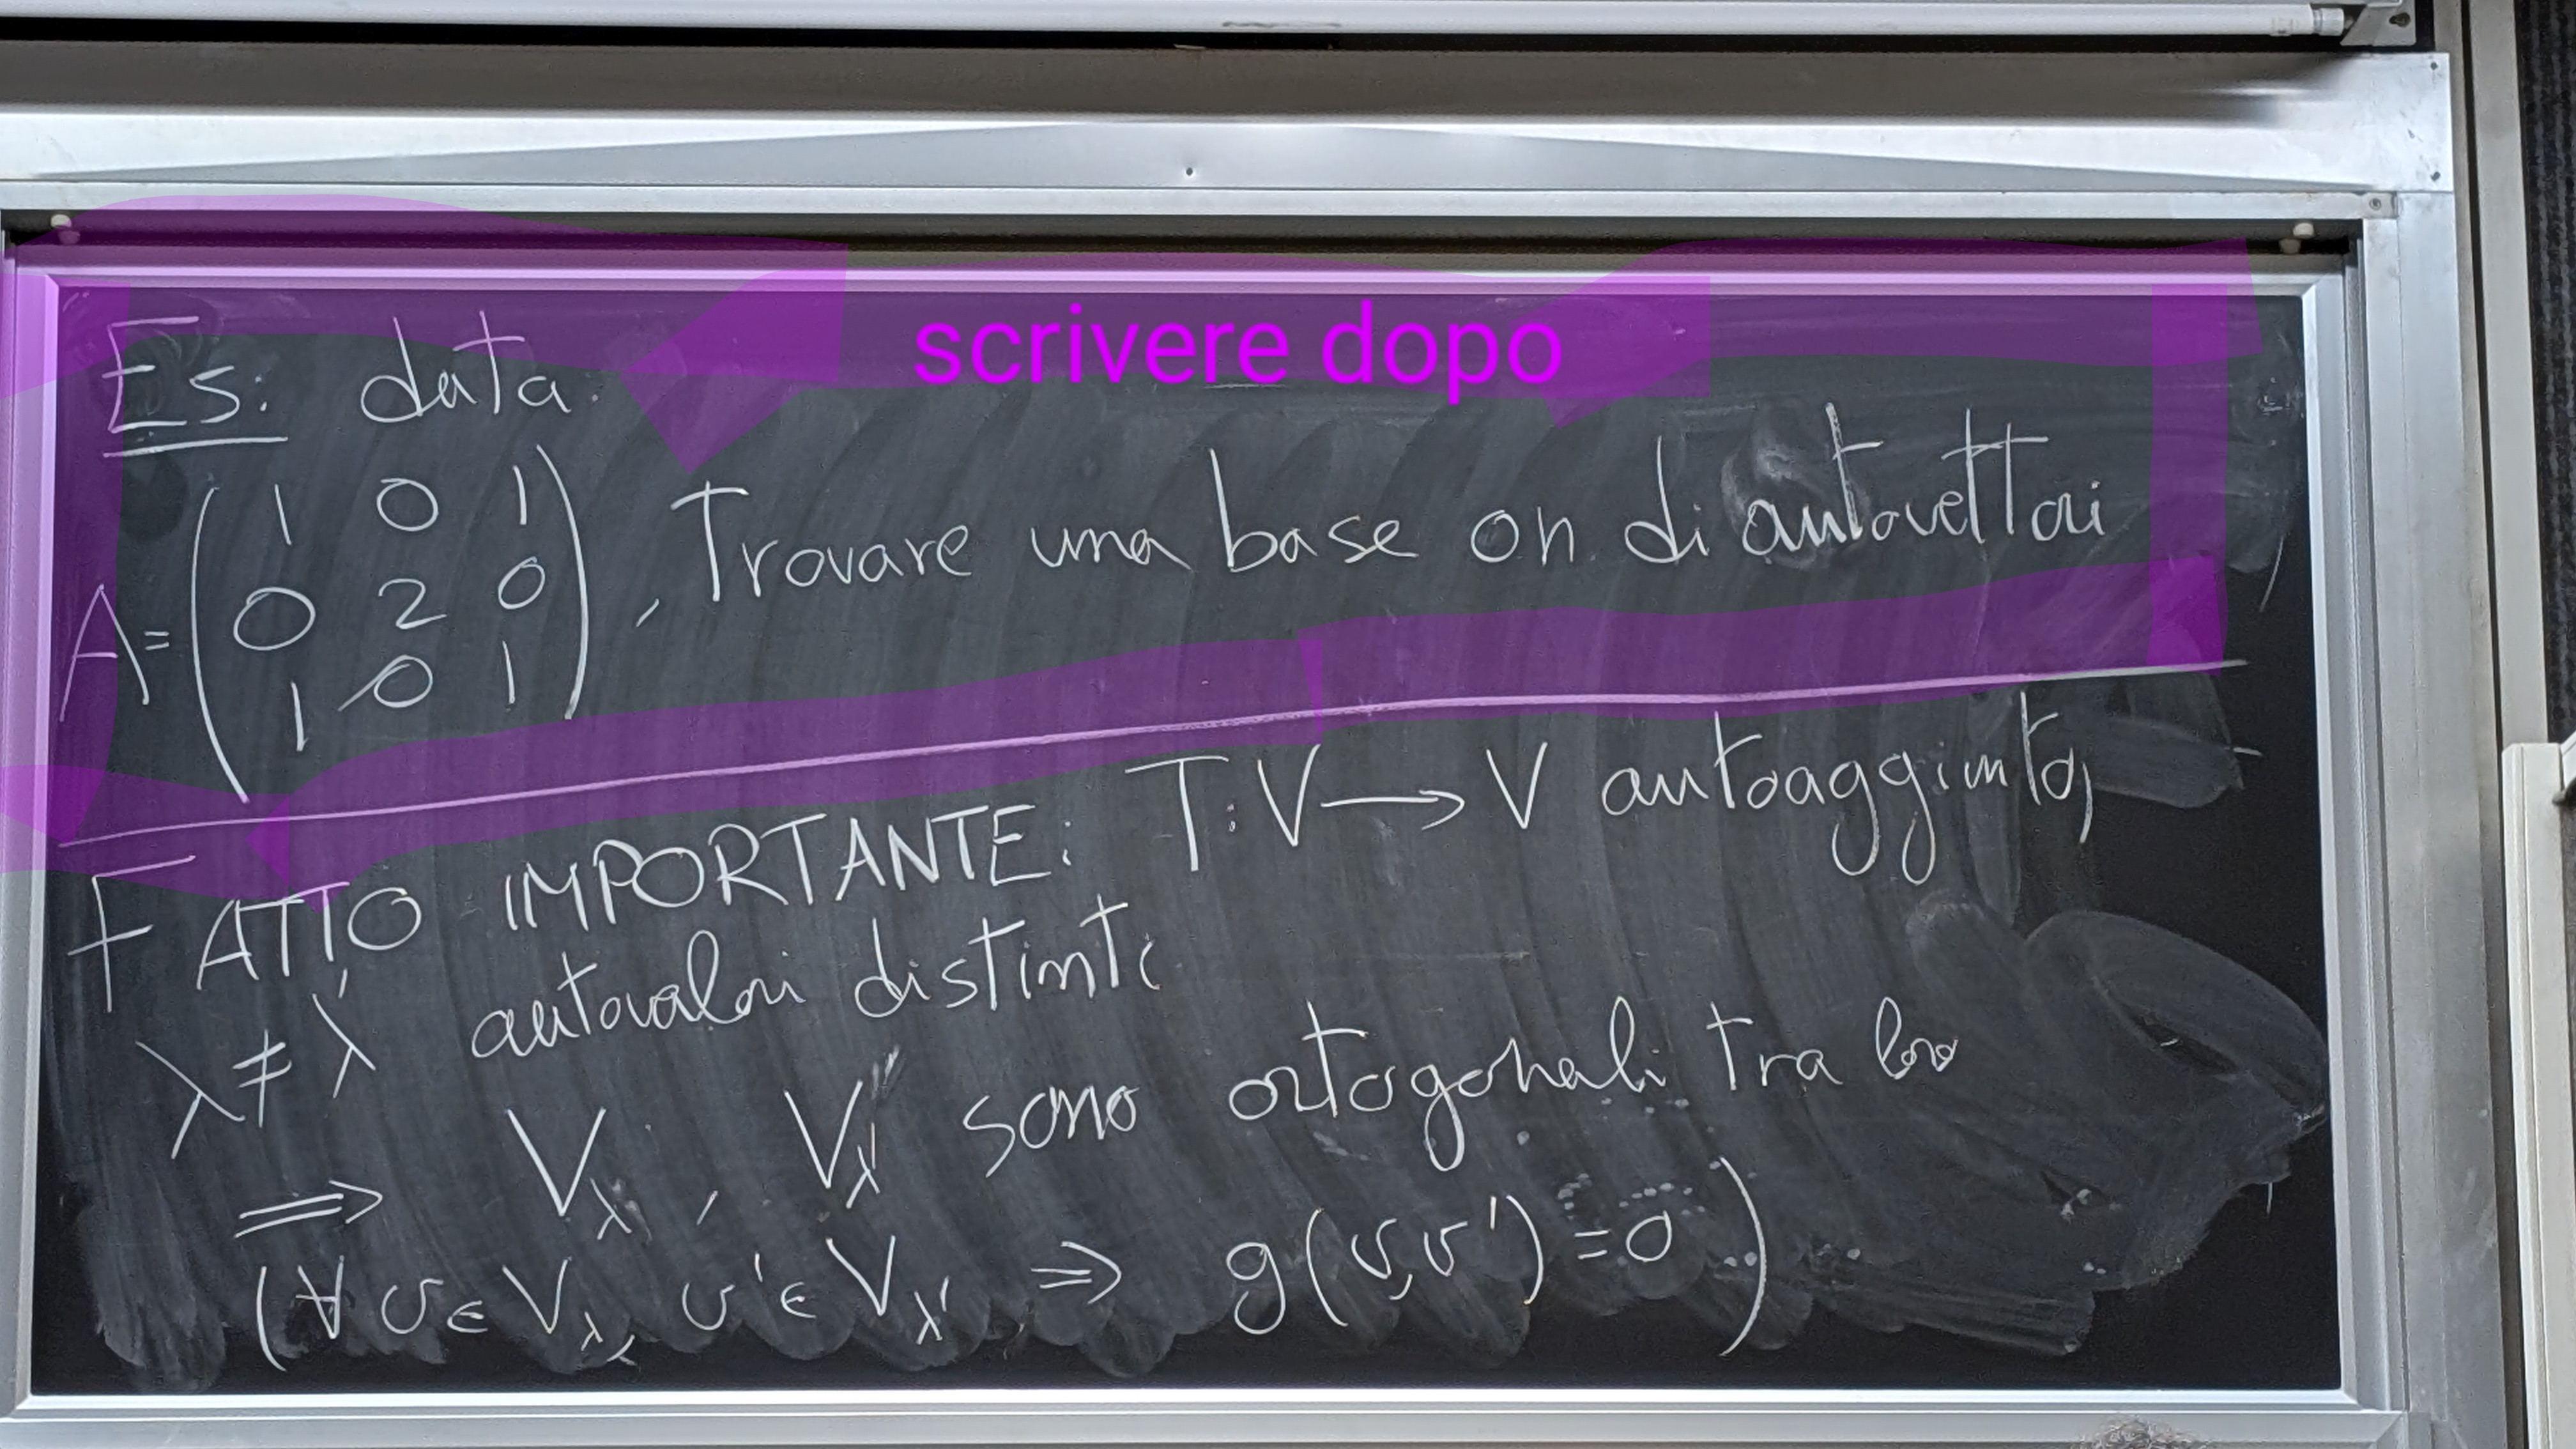 scrivere dopo
Es: data
A = ( 1 0 1
0 2 0
1 0 1 ) , Trovare una base on di autovettori
FATTO IMPORTANTE: T: V → V autoaggiunto,
λ ≠ λ' autovalori distinti
⟹ V_λ, V_λ' sono ortogonali tra loro
(∀ v ∈ V_λ, v' ∈ V_λ' ⇒ g(v,v') = 0)